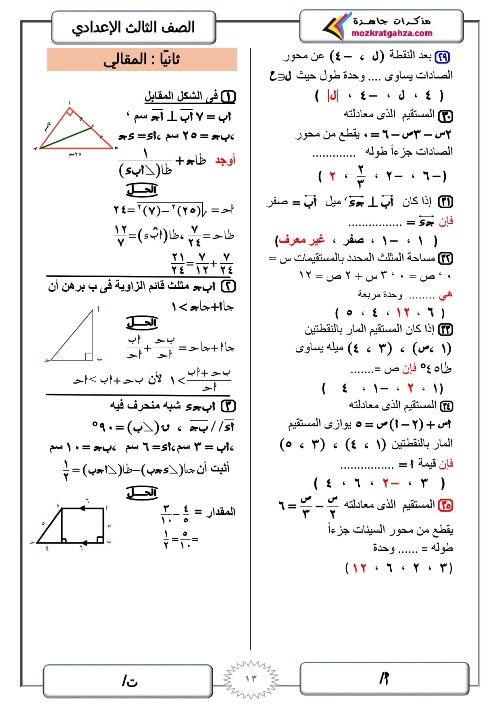 مذكرات جاهزة
mozkratgahza.com
الصف الثالث الإعدادي
٢٩ بعد النقطة ( ل ، -٤ ) عن محور
الصادات يساوى .... وحدة طول حيث ل∋ح
( ٤ ، ل ، -٤ ، |ل| )
٣٠ المستقيم الذى معادلته
٢س -٣ص -٦ = ٠ يقطع من محور
الصادات جزءاً طوله .............
( -٦ ، -٢ ، ٢/٣ ، ٢ )
٣١ إذا كان أب ⊥ جـد ، ميل أب = صفر
فإن جـد = ................
( ١ ، -١ ، صفر ، غير معرف )
٣٢ مساحة المثلث المحدد بالمستقيمات س =
٠ ، ص = ٠ ، ٣ س + ٢ ص = ١٢
هي ........ وحدة مربعة
( ٦ ، ١٢ ، ٤ ، ٥ )
٣٣ إذا كان المستقيم المار بالنقطتين
( ١ ، ص ) ، ( ٣ ، ٤ ) ميله يساوى
ظا٤٥° فإن ص = .......
( ١ ، ٢ ، -١ ، ٤ )
٣٤ المستقيم الذى معادلته
أس + (٢ -١) ص = ٥ يوازى المستقيم
المار بالنقطتين ( ١ ، ٤ ) ، ( ٣ ، ٥ )
فإن قيمة أ = ..............
( ٣ ، -٢ ، ٤ ، ٦ )
٣٥ المستقيم الذى معادلته س/٢ - ص/٣ = ٦
يقطع من محور السينات جزءاً
طوله = ...... وحدة
( ٣ ، ٢ ، ٦ ، ١٢ )
ثانيا : المقالي
١ فى الشكل المقابل
أب = ٧ سم ، أب ⊥ أجـ
، بجـ = ٢٥ سم ، أد = جـد
أوجد ظاجـ + ١/ظا(∠أبد)
الحل
أحـ = √(٢٥)² - (٧)² = ٢٤
ظاحـ = ٧/٢٤ ، ظا(أبد) = ١٢/٧
٧/٢٤ + ٧/١٢ = ٢١/٢٤
٢ أبجـ مثلث قائم الزاوية فى ب برهن أن
جاأ + جاجـ > ١
الحل
جاأ + جاحـ = بحـ/أحـ + أب/أحـ
بحـ + أب/أحـ > ١ لأن بحـ + أب > أحـ
٣ أبجـد شبه منحرف فيه
أد // بجـ ، ق(∠ب) = ٩٠°
، أب = ٣ سم ، أد = ٦ سم ، بجـ = ١٠ سم
أثبت أن جتا(∠دجب) - ظا(∠أجب) = ١/٢
الحل
المقدار = ٤/٥ - ٣/١٠
= ٥/١٠ = ١/٢
أ/
١٣
ت/